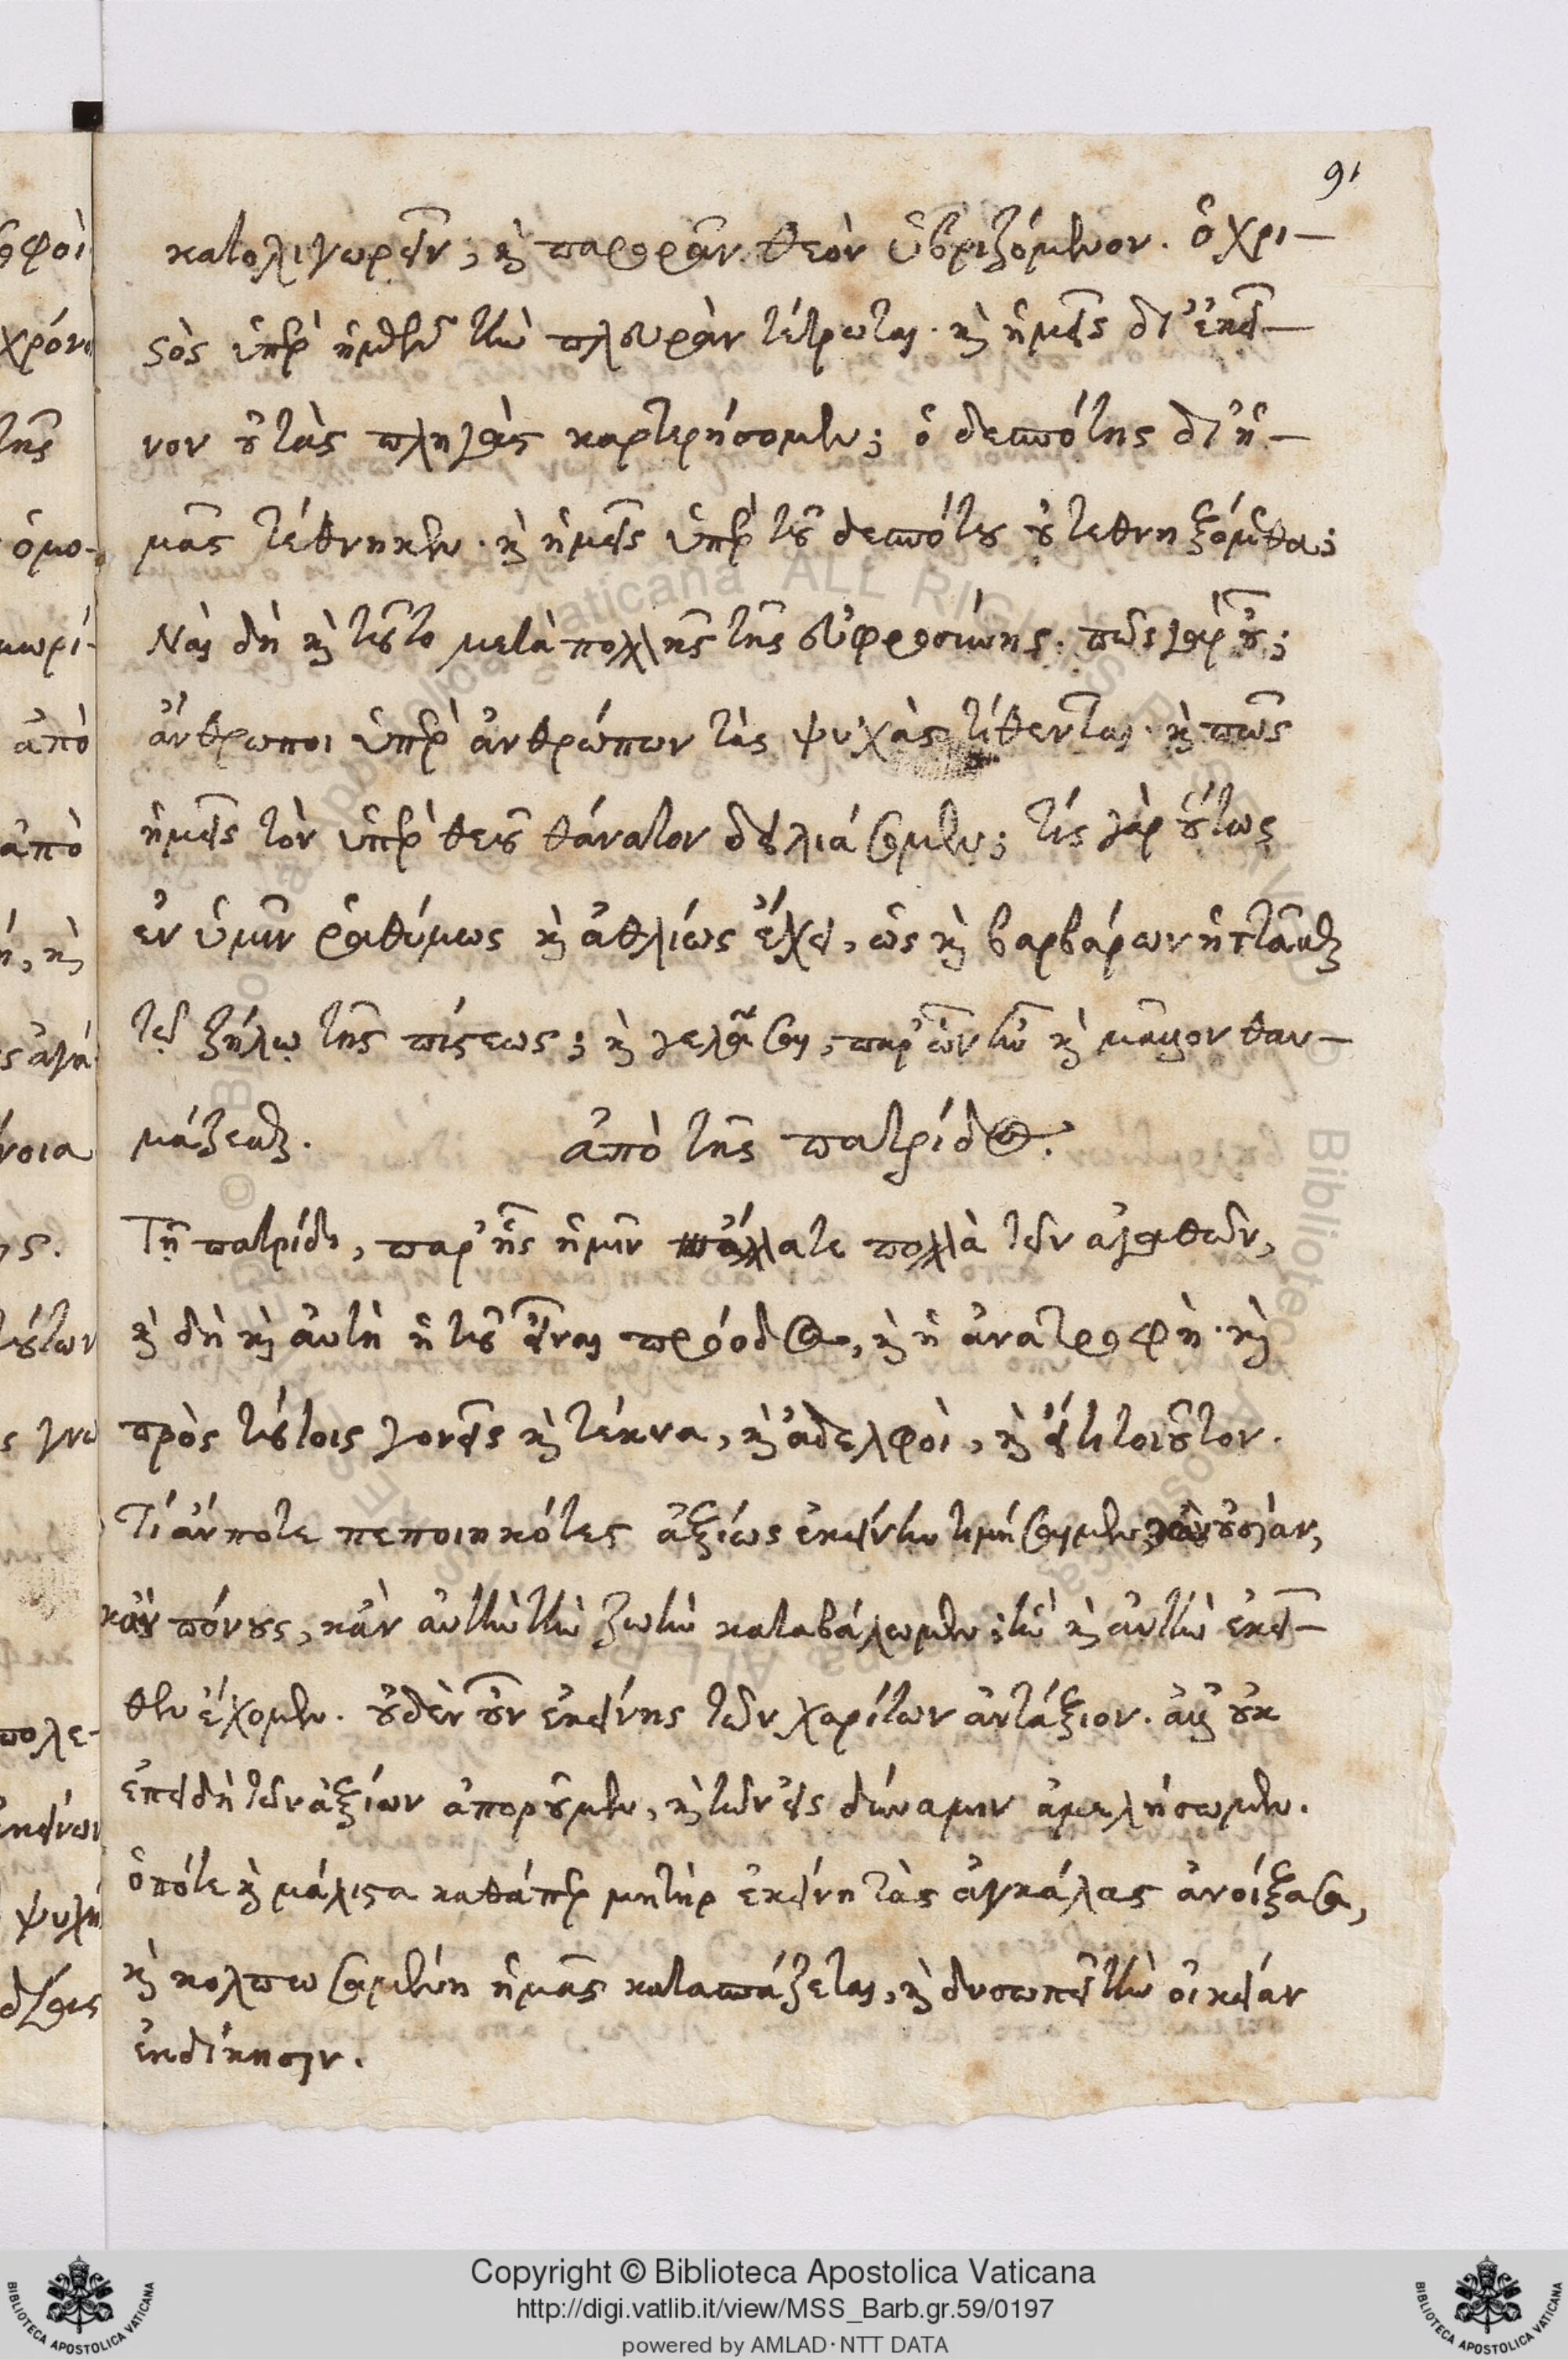 91
κατολιγωρεῖν, καὶ παρορᾶν θεὸν ὑβριζόμενον. ὁ χρι-
στὸς ὑπὲρ ἡμῶν τὴν πλευρὰν τέτρωται· καὶ ἡμεῖς δι' ἐκεῖ-
νον οὐ τὰς πληγὰς καρτερήσομεν; ὁ δεσπότης δι' ἡ-
μᾶς τέθνηκεν· καὶ ἡμεῖς ὑπὲρ τοῦ δεσπότου οὐ τεθνηξόμεθα;
Ναὶ δὴ καὶ τοῦτο μετὰ πολλῆς τῆς εὐφροσύνης. πῶς γὰρ οὔ;
ἄνθρωποι ὑπὲρ ἀνθρώπων τὰς ψυχὰς τίθενται· καὶ πῶς
ἡμεῖς τὸν ὑπὲρ θεοῦ θάνατον δειλιάσομεν; τίς γὰρ οὕτως
ἐν ὑμῖν ῥαθύμως καὶ ἀθλίως ἔχει, ὡς καὶ βαρβάρων ἡττᾶσθαι
τῷ ζήλῳ τῆς πίστεως; καὶ γελᾶσθαι, παρ' ὧν ἦν καὶ μᾶλλον θαυ-
μάζεσθαι. ἀπὸ τῆς πατρίδος.
Τῇ πατρίδι, παρ' ἧς ἡμῖν ἄλλα τε πολλὰ τῶν ἀγαθῶν,
καὶ δὴ καὶ αὐτὴ ἡ τοῦ εἶναι πρόοδος, καὶ ἡ ἀνατροφὴ· καὶ
πρὸς τούτοις γονεῖς καὶ τέκνα, καὶ ἀδελφοὶ, καὶ εἴ τι τοιοῦτον.
Τί ἄν ποτε πεποιηκότες ἀξίως ἐκείνην τιμήσαιμεν, κἂν οὐσίαν,
κἂν πόνους, κἂν αὐτὴν τὴν ζωὴν καταβάλωμεν; ἣν καὶ αὐτὴν ἐκεῖ-
θεν ἔχομεν. οὐδὲν οὖν ἐκείνης τῶν χαρίτων ἀντάξιον. ἀλλ' οὐκ
ἐπειδὴ τῶν ἀξίων ἀποροῦμεν, καὶ τῶν εἰς δύναμιν ἀμελήσωμεν.
ὁπότε καὶ μάλιστα καθάπερ μήτηρ ἐκείνη τὰς ἀγκάλας ἀνοίξασα,
καὶ κολπωσαμένη ἡμᾶς κατασπάζεται, καὶ δυσωπεῖ τὴν οἰκείαν
ἐκδίκησιν.
Copyright © Biblioteca Apostolica Vaticana
http://digi.vatlib.it/view/MSS_Barb.gr.59/0197
powered by AMLAD·NTT DATA